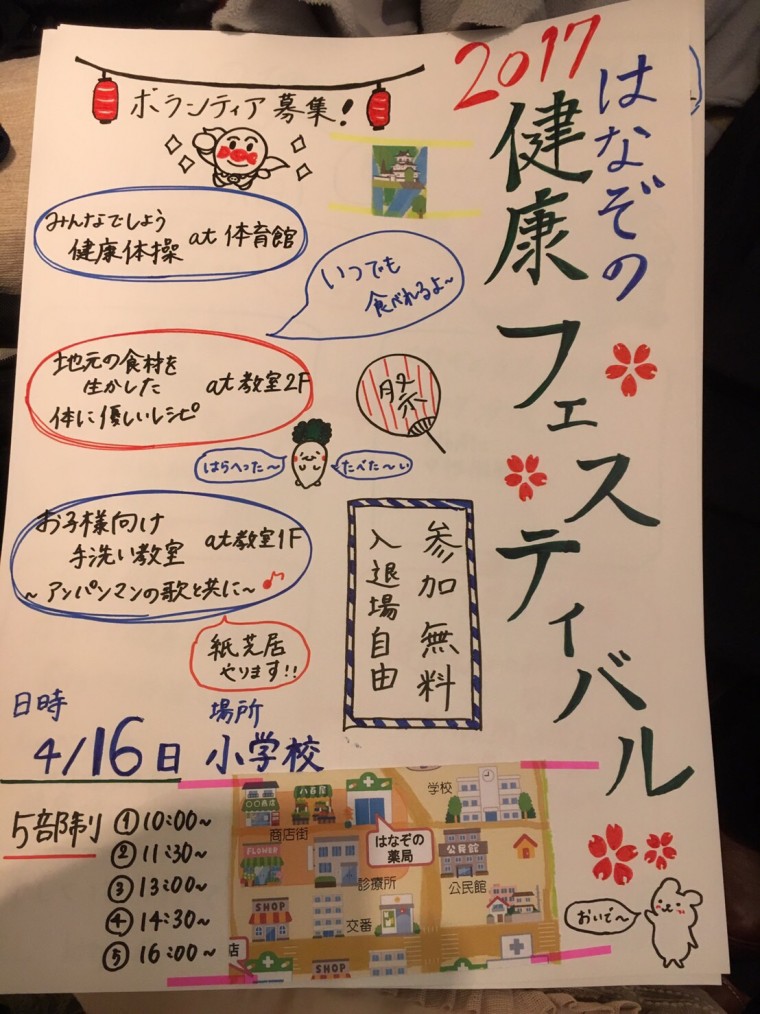 2017
はなぞの
健康フェスティバル
ボランティア募集!
みんなでしよう
健康体操 at 体育館
いつでも
食べれるよ~
地元の食材を
生かした
体に優しいレシピ
at 教室2F
祭
はらへった~
たべた~い
お子様向け
手洗い教室
at 教室1F
~アンパンマンの歌と共に~
紙芝居
やります!!
参加無料
入退場自由
日時
4/16日
場所
小学校
5部制
① 10:00~
② 11:30~
③ 13:00~
④ 14:30~
⑤ 16:00~
〇〇商店
八百屋
学校
商店街
はなぞの
薬局
公民館
FLOWER
診療所
公民館
SHOP
交番
店
SHOP
おいで~